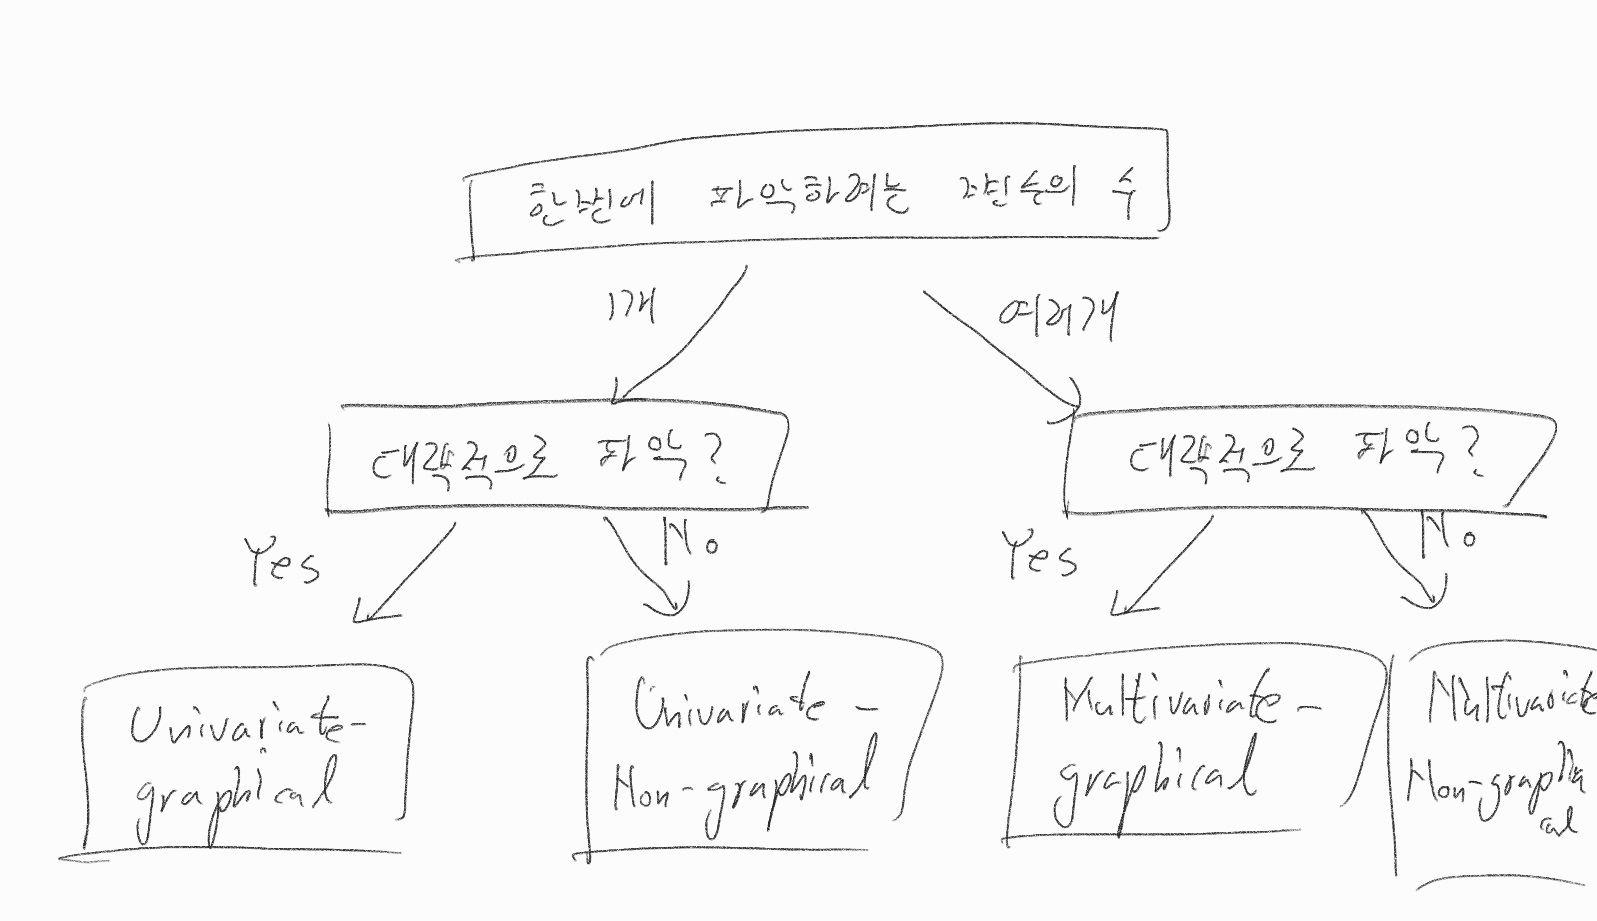 한번에 파악하려는 변수의 수
1개
여러개
대략적으로 파악?
대략적으로 파악?
Yes
No
Yes
No
Univariate-
graphical
Univariate -
Non-graphical
Multivariate -
graphical
Multivariate
Non-graphi
cal